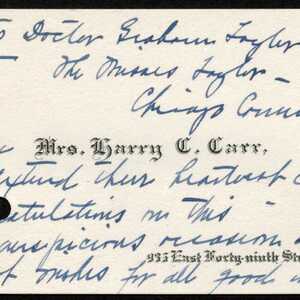 Doctor Graham Taylor
The Misses Taylor —
Chicago
Mrs. Harry C. Carr,
extend their heartiest
on this —
auspicious occasion
for all good
935 East Forty-ninth